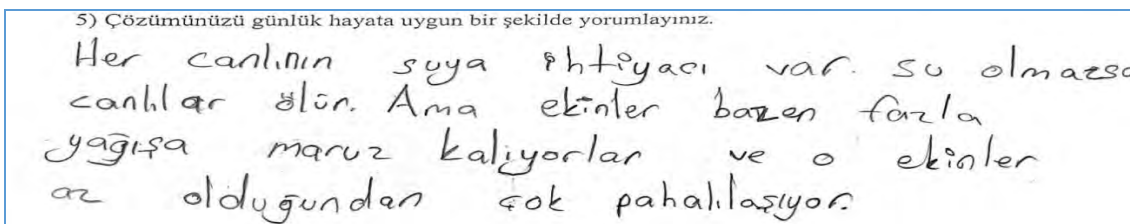 5) Çözümünüzü günlük hayata uygun bir şekilde yorumlayınız.
Her canlının suya ihtiyacı var. su olmazsa
canlılar ölür. Ama ekinler bazen fazla
yağışa maruz kalıyorlar ve o ekinler
az olduğundan çok pahalılaşıyor.